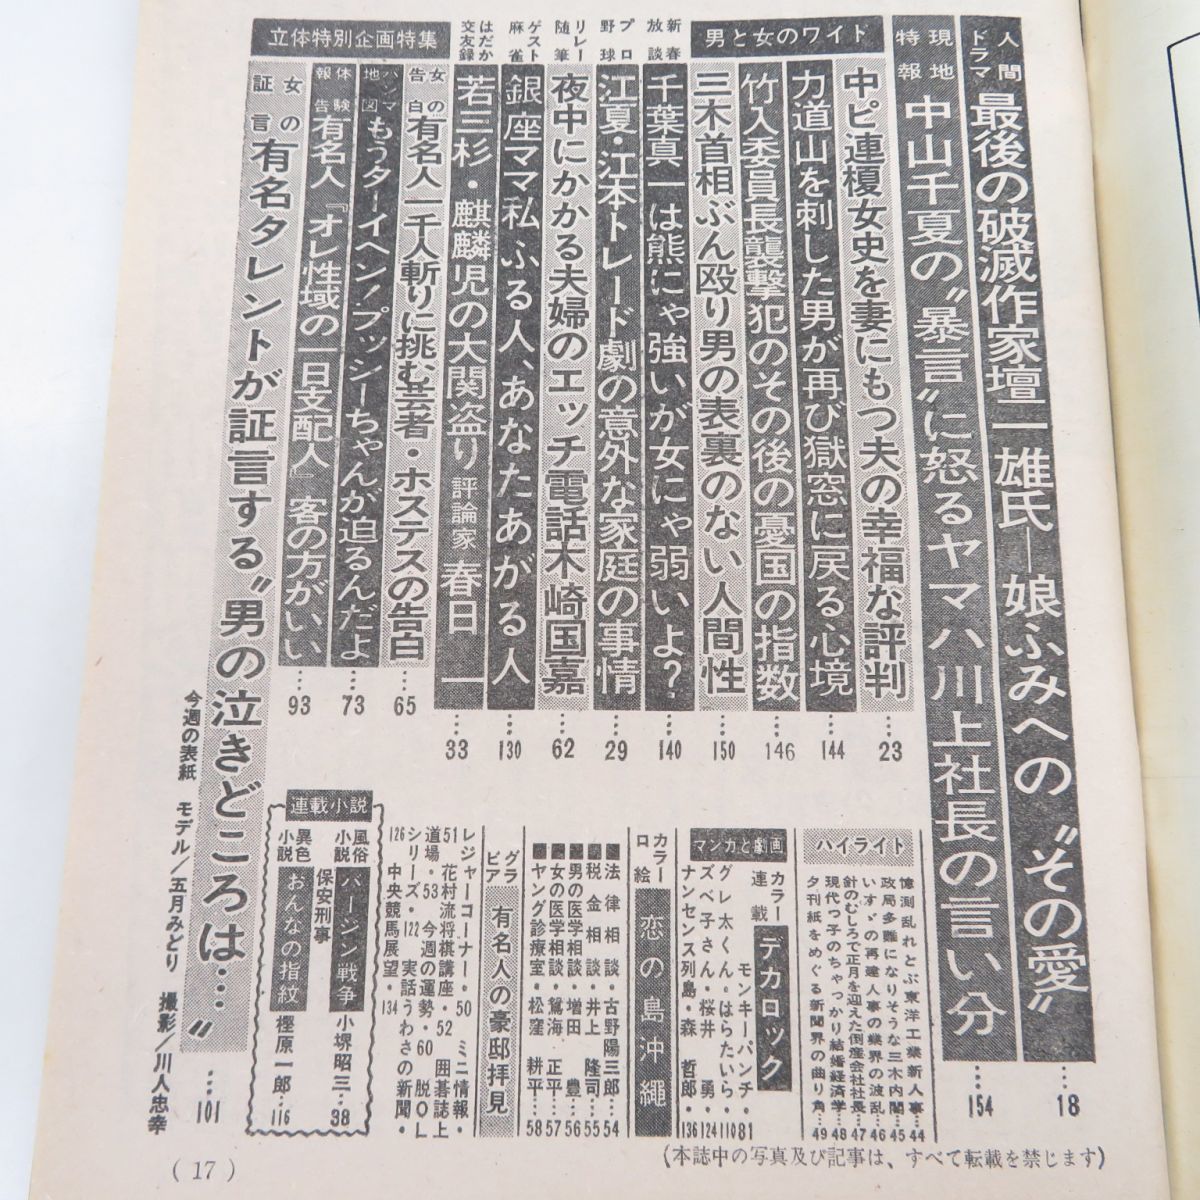 人間ドラマ 最後の破滅作家壇一雄氏―娘ふみへの〝その愛〟…18
現地特報 中山千夏の〝暴言〟に怒るヤマハ川上社長の言い分…154
男と女のワイド
中ピ連榎女史を妻にもつ夫の幸福な評判…23
力道山を刺した男が再び獄窓に戻る心境…144
竹入委員長襲撃犯のその後の憂国の指数…146
三木首相ぶん殴り男の表裏のない人間性…150
新春放談 千葉真一は熊にゃ強いが女にゃ弱いよ?…140
プロ野球 江夏・江本トレード劇の意外な家庭の事情…29
リレー随筆 夜中にかかる夫婦のエッチ電話 木崎国嘉…62
ゲスト麻雀 銀座ママ私ふる人、あなたあがる人…130
はだか交友録 若三杉・麒麟児の大関盗り 評論家 春日一…33
立体特別企画特集
女の告白 有名人一千人斬りに挑む芸者・ホステスの告白…65
パンマ地図 もうターイヘン!プッシーちゃんが迫るんだよ…73
体験報告 有名人『オレ性域の一日支配人』客の方がいい…93
女の証言 有名タレントが証言する〝男の泣きどころは…〟…101
ハイライト
憶測乱れとぶ東洋工業新人事…44
政局多難になりそうな三木内閣…45
いすゞの再建人事の業界の波乱…46
針のむしろで正月を迎えた倒産会社社長…47
現代っ子のちゃっかり結婚経済学…48
夕刊紙をめぐる新聞界の曲り角…49
マンガと劇画
カラー連載 デカロック
モンキーパンチ・81
グレ太くん・はらたいら・110
ズベ子さん・桜井 勇・124
ナンセンス列島・森 哲郎・136
カラー口絵 恋の島沖縄
■法律相談・古野陽三郎…54
■税金相談・井上 隆司…55
■男の医学相談・増田 豊…56
■女の医学相談・鴛海 正平…57
■ヤング診療室・松窪 耕平…58
グラビア 有名人の豪邸拝見
レジャーコーナー・50 ミニ情報・
51 花村流将棋講座・52 囲碁誌上
道場・53 今週の運勢・60 脱OL
シリーズ・122 実話うわさの新聞・
126 中央競馬展望・134
連載小説
風俗小説 バージン戦争 小堺昭三…38
保安刑事
異色小説 おんなの指紋 樫原一郎…116
今週の表紙 モデル/五月みどり 撮影/川人忠幸
(本誌中の写真及び記事は、すべて転載を禁じます)
(17)